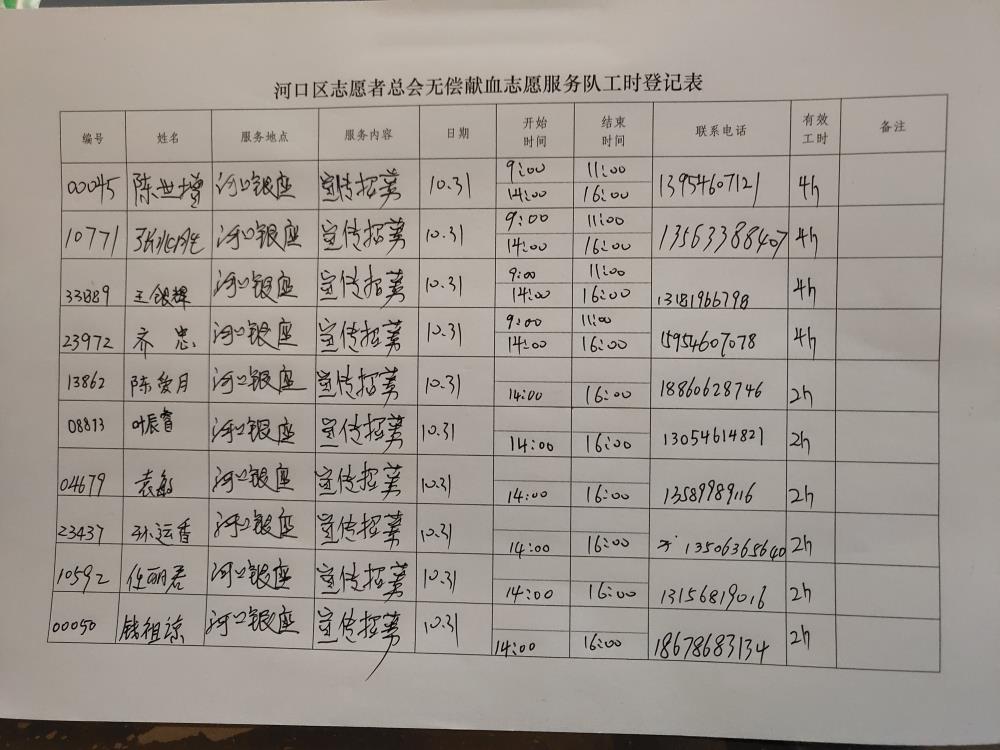 河口区志愿者总会无偿献血志愿服务队工时登记表
编号 姓名 服务地点 服务内容 日期 开始时间 结束时间 联系电话 有效工时 备注
00045 陈世增 河口银座 宣传招募 10.31 9:00 11:00 13954607121 4h
14:00 16:00
10771 河口银座 宣传招募 10.31 9:00 11:00 13563388407 4h
14:00 16:00
33889 王银辉 河口银座 宣传招募 10.31 9:00 11:00 13181966798 4h
14:00 16:00
23972 齐忠 河口银座 宣传招募 10.31 9:00 11:00 15954607078 4h
14:00 16:00
13862 陈爱月 河口银座 宣传招募 10.31 14:00 16:00 18860628746 2h
08813 叶辰睿 河口银座 宣传招募 10.31 14:00 16:00 13054614821 2h
04679 袁敏 河口银座 宣传招募 10.31 14:00 16:00 13589989116 2h
23437 孙运香 河口银座 宣传招募 10.31 14:00 16:00 13506365640 2h
10592 任丽君 河口银座 宣传招募 10.31 14:00 16:00 13156819016 2h
00050 钱祖谅 河口银座 宣传招募 10.31 14:00 16:00 18678683134 2h